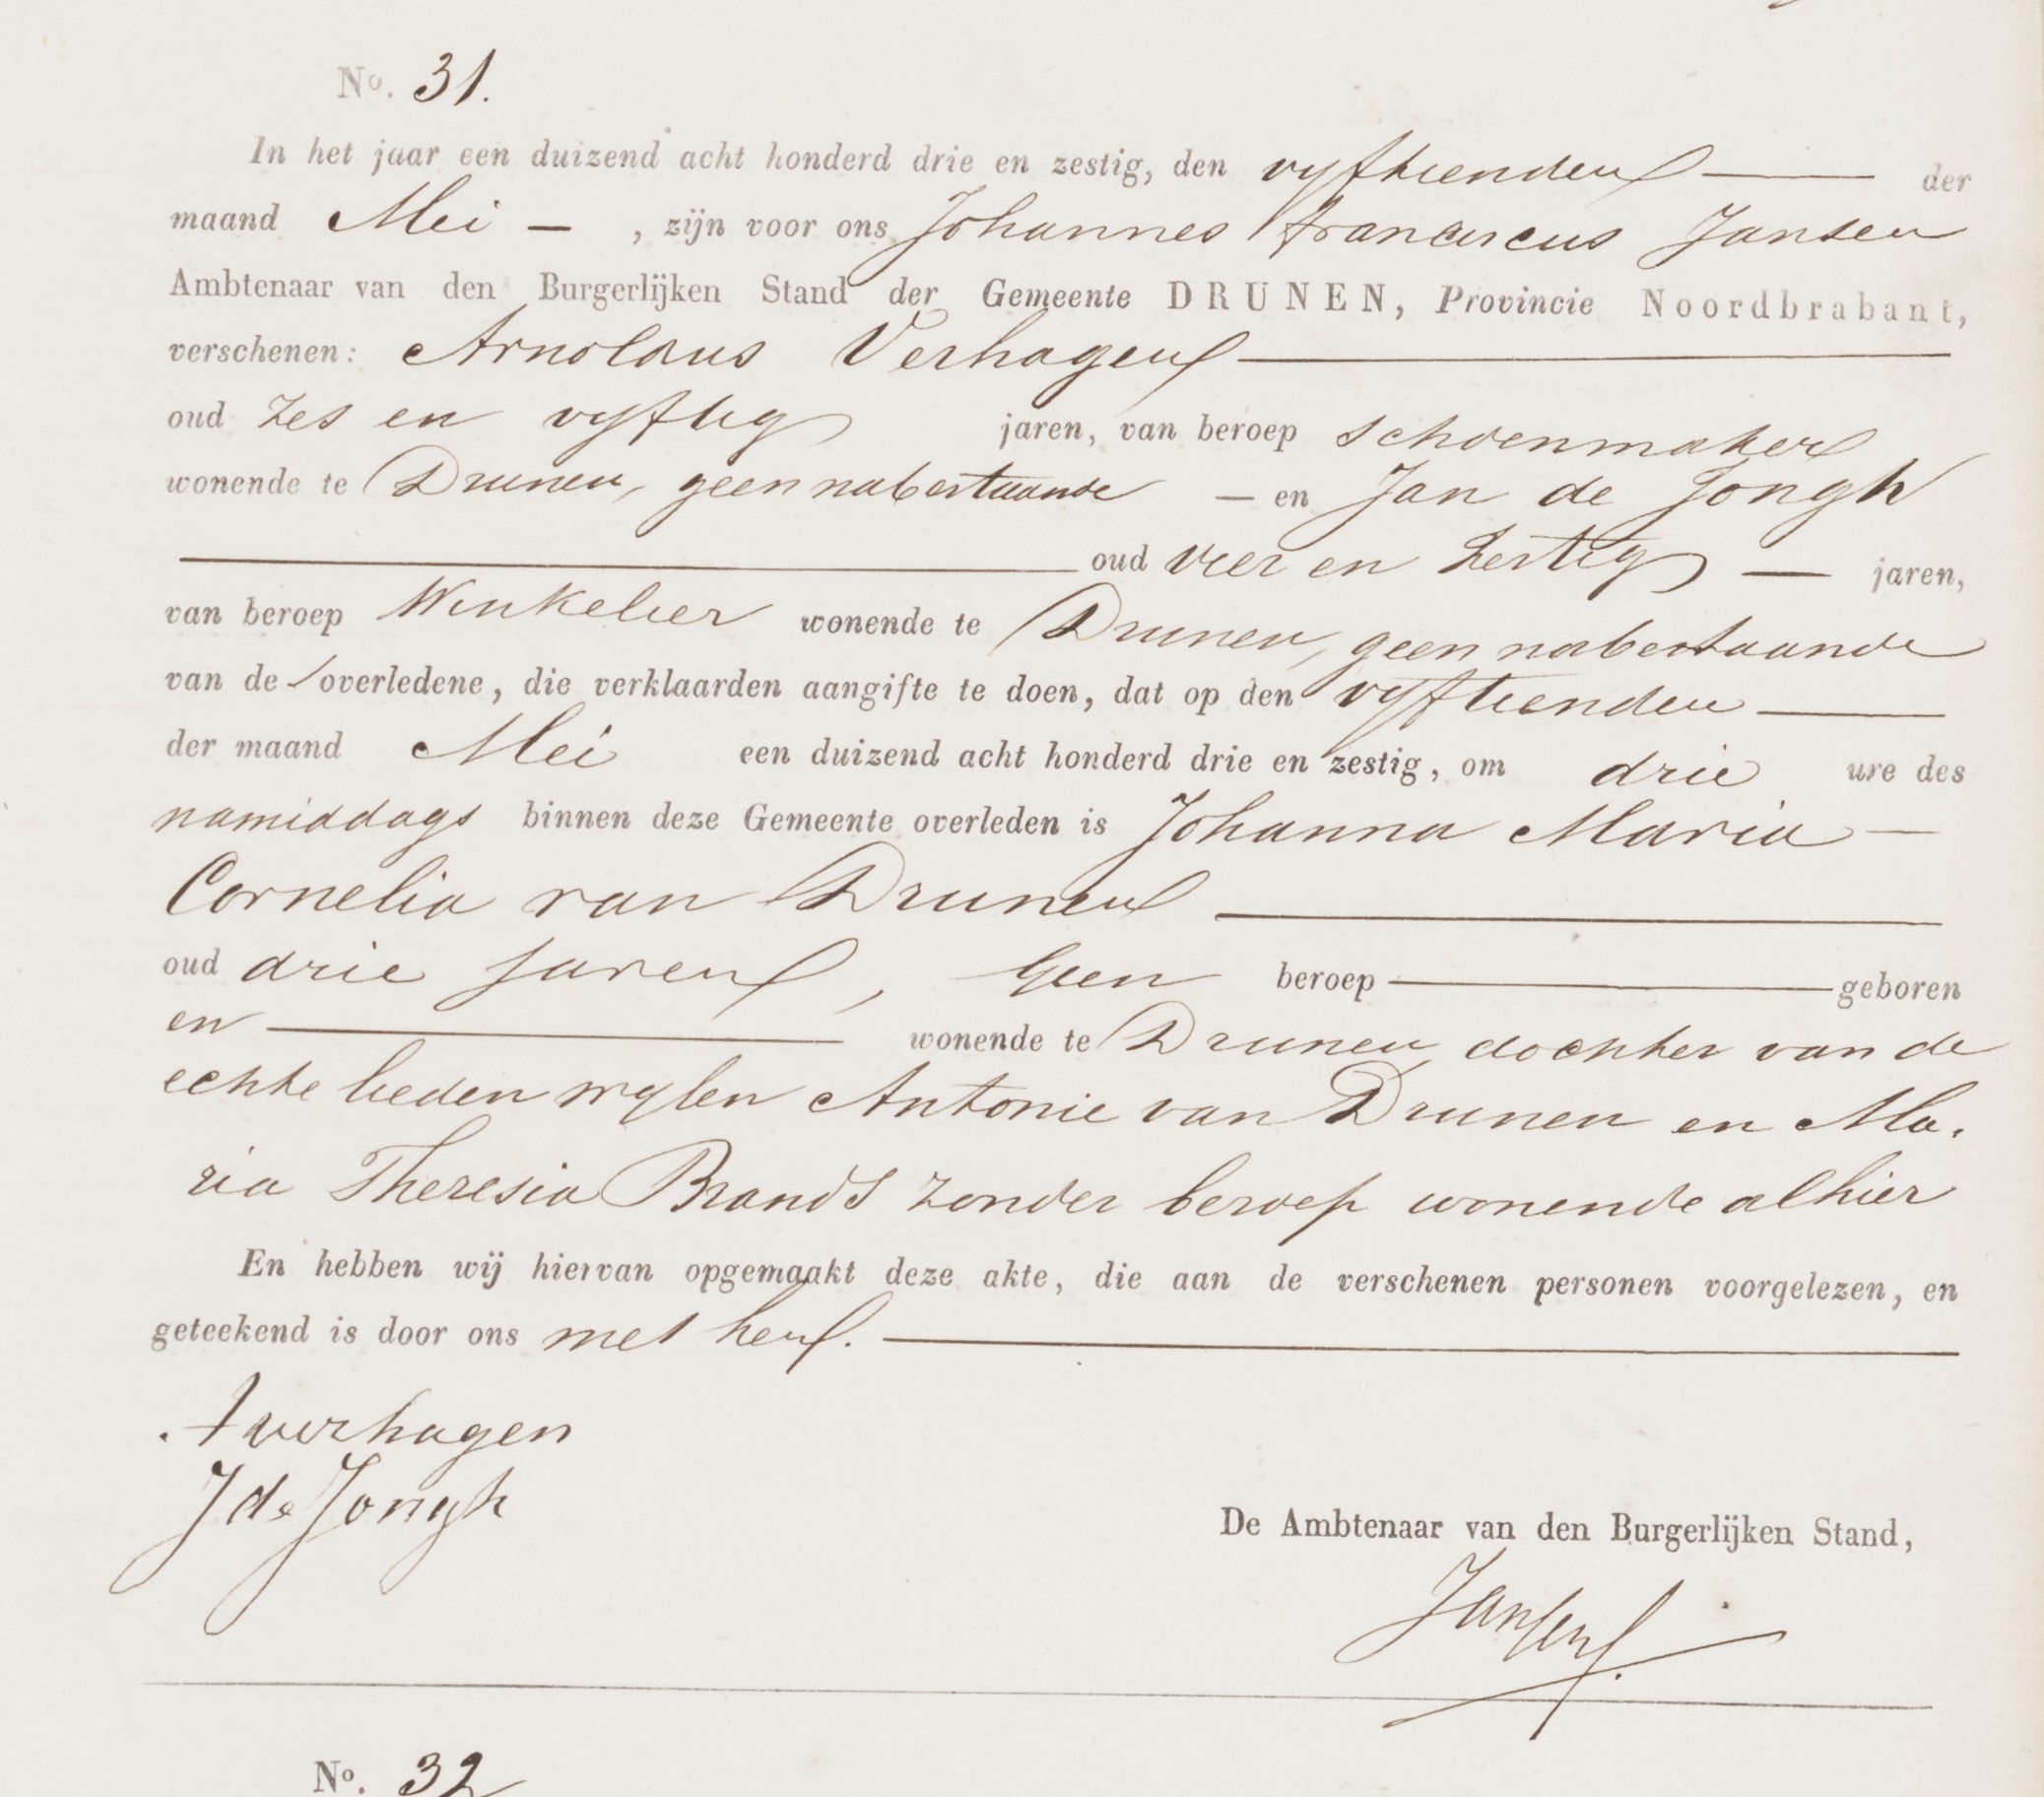 No. 31.
In het jaar een duizend acht honderd drie en zestig, den vyftienden der
maand Mei – , zijn voor ons Johannes Franciscus Jansen
Ambtenaar van den Burgerlijken Stand der Gemeente DRUNEN, Provincie Noordbrabant,
verschenen: Arnoldus Verhagen
oud zes en vyftig jaren, van beroep schoenmaker
wonende te Drunen, geen nabestaande – en Jan de Jongh
oud vier en zestig — jaren,
van beroep Winkelier wonende te Drunen, geen nabestaande
van de overledene, die verklaarden aangifte te doen, dat op den vyftienden
der maand Mei een duizend acht honderd drie en zestig, om drie ure des
namiddags binnen deze Gemeente overleden is Johanna Maria
Cornelia van Drunen
oud drie jaren, Geen beroep geboren
en wonende te Drunen, dochter van de
echte lieden wylen Antonie van Drunen en Ma.
ria Theresia Brands zonder beroep wonende alhier
En hebben wij hiervan opgemaakt deze akte, die aan de verschenen personen voorgelezen, en
geteekend is door ons met hen.
A verhagen
J de Jongh
De Ambtenaar van den Burgerlijken Stand,
Jansen
No. 32